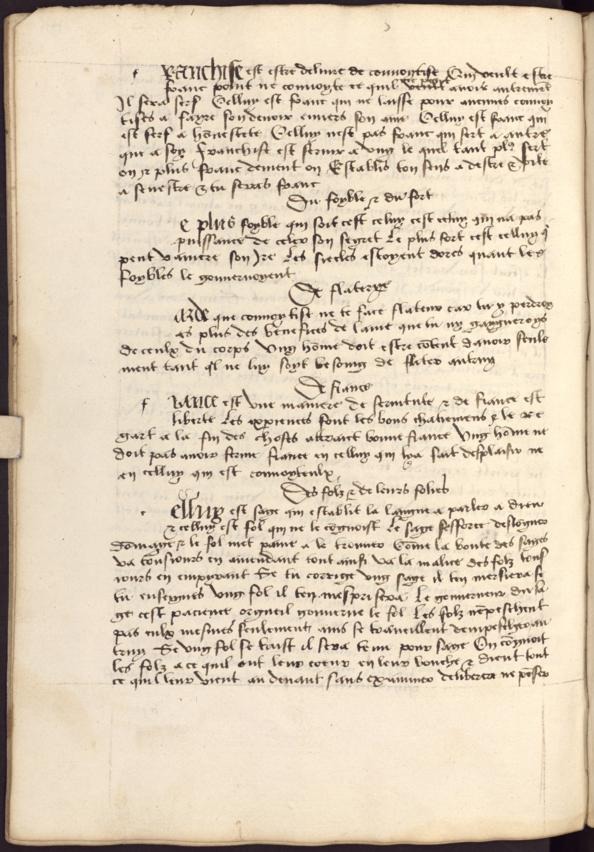 f Ranchise est estre delivre de convoytise Qui veult estre
franc point ne convoyte ce quil ne peut avoir autrement
Il sera serf Celluy est franc qui ne laisse pour aucunes convoy
tises a fayre son devoir envers son ame Celluy est franc qui
est serf a honestete Celluy nest pas franc qui sert a autre
que a soy Franchise est servir a ung le quel tant plus sert
on et plus franchement on Establis ton sens a destre et
a senestre et tu seras franc
Du foyble et du fort
e plus foyble qui soit cest celuy cest celuy qui na pas
puissance de celer son segret Le plus fort cest celluy q
peut vaincre son Ire Les siecles estoyent dores quant les
foybles le gouvernoyent
De flaterye
que convoytise ne te face flateur car tu y perdroys
plus des benefices de lame que tu ny gaigneroys
de ceulx du corps Ung home doit estre cotent davoir seule
ment tant ql ne luy soyt besoing de flater autruy
De fiance
f iance est une maniere de servitute et de fiance est
liberte Les expiences sont les bons chatiemens et le re
gart a la fin des choses actrait bonne fiance Ung home ne
doit pas avoir ferme fiance en celluy qui luy a fait desplaisir ne
en celluy qui est convoyteulx
Des folz et de leurs folies
c elluy est sage qui establit la langue a parler a dieu
et celluy est fol qui ne le cognoist Le sage sefforce desloigner
domage et le fol met paine a le trouver Come la bonte des sages
va tousiours en amendant tout ainsi va la malice des folz tous
iours en empirant Se tu corrige ung sage il ten merciera se
tu enseignes ung fol il ten mesprisera Le gouverneur du sa
ge cest pacience orgueil gouverne le fol Les folz nepeschent
pas eulx mesmes seulement ains se travaillent dempescher au
truy Se ung fol se taist il sera tenu pour sage On cognoit
les folz a ce quil ont leur coeur en leur bouche et dient tout
ce quil leur vient au devant sans examiner deliberer ne peser